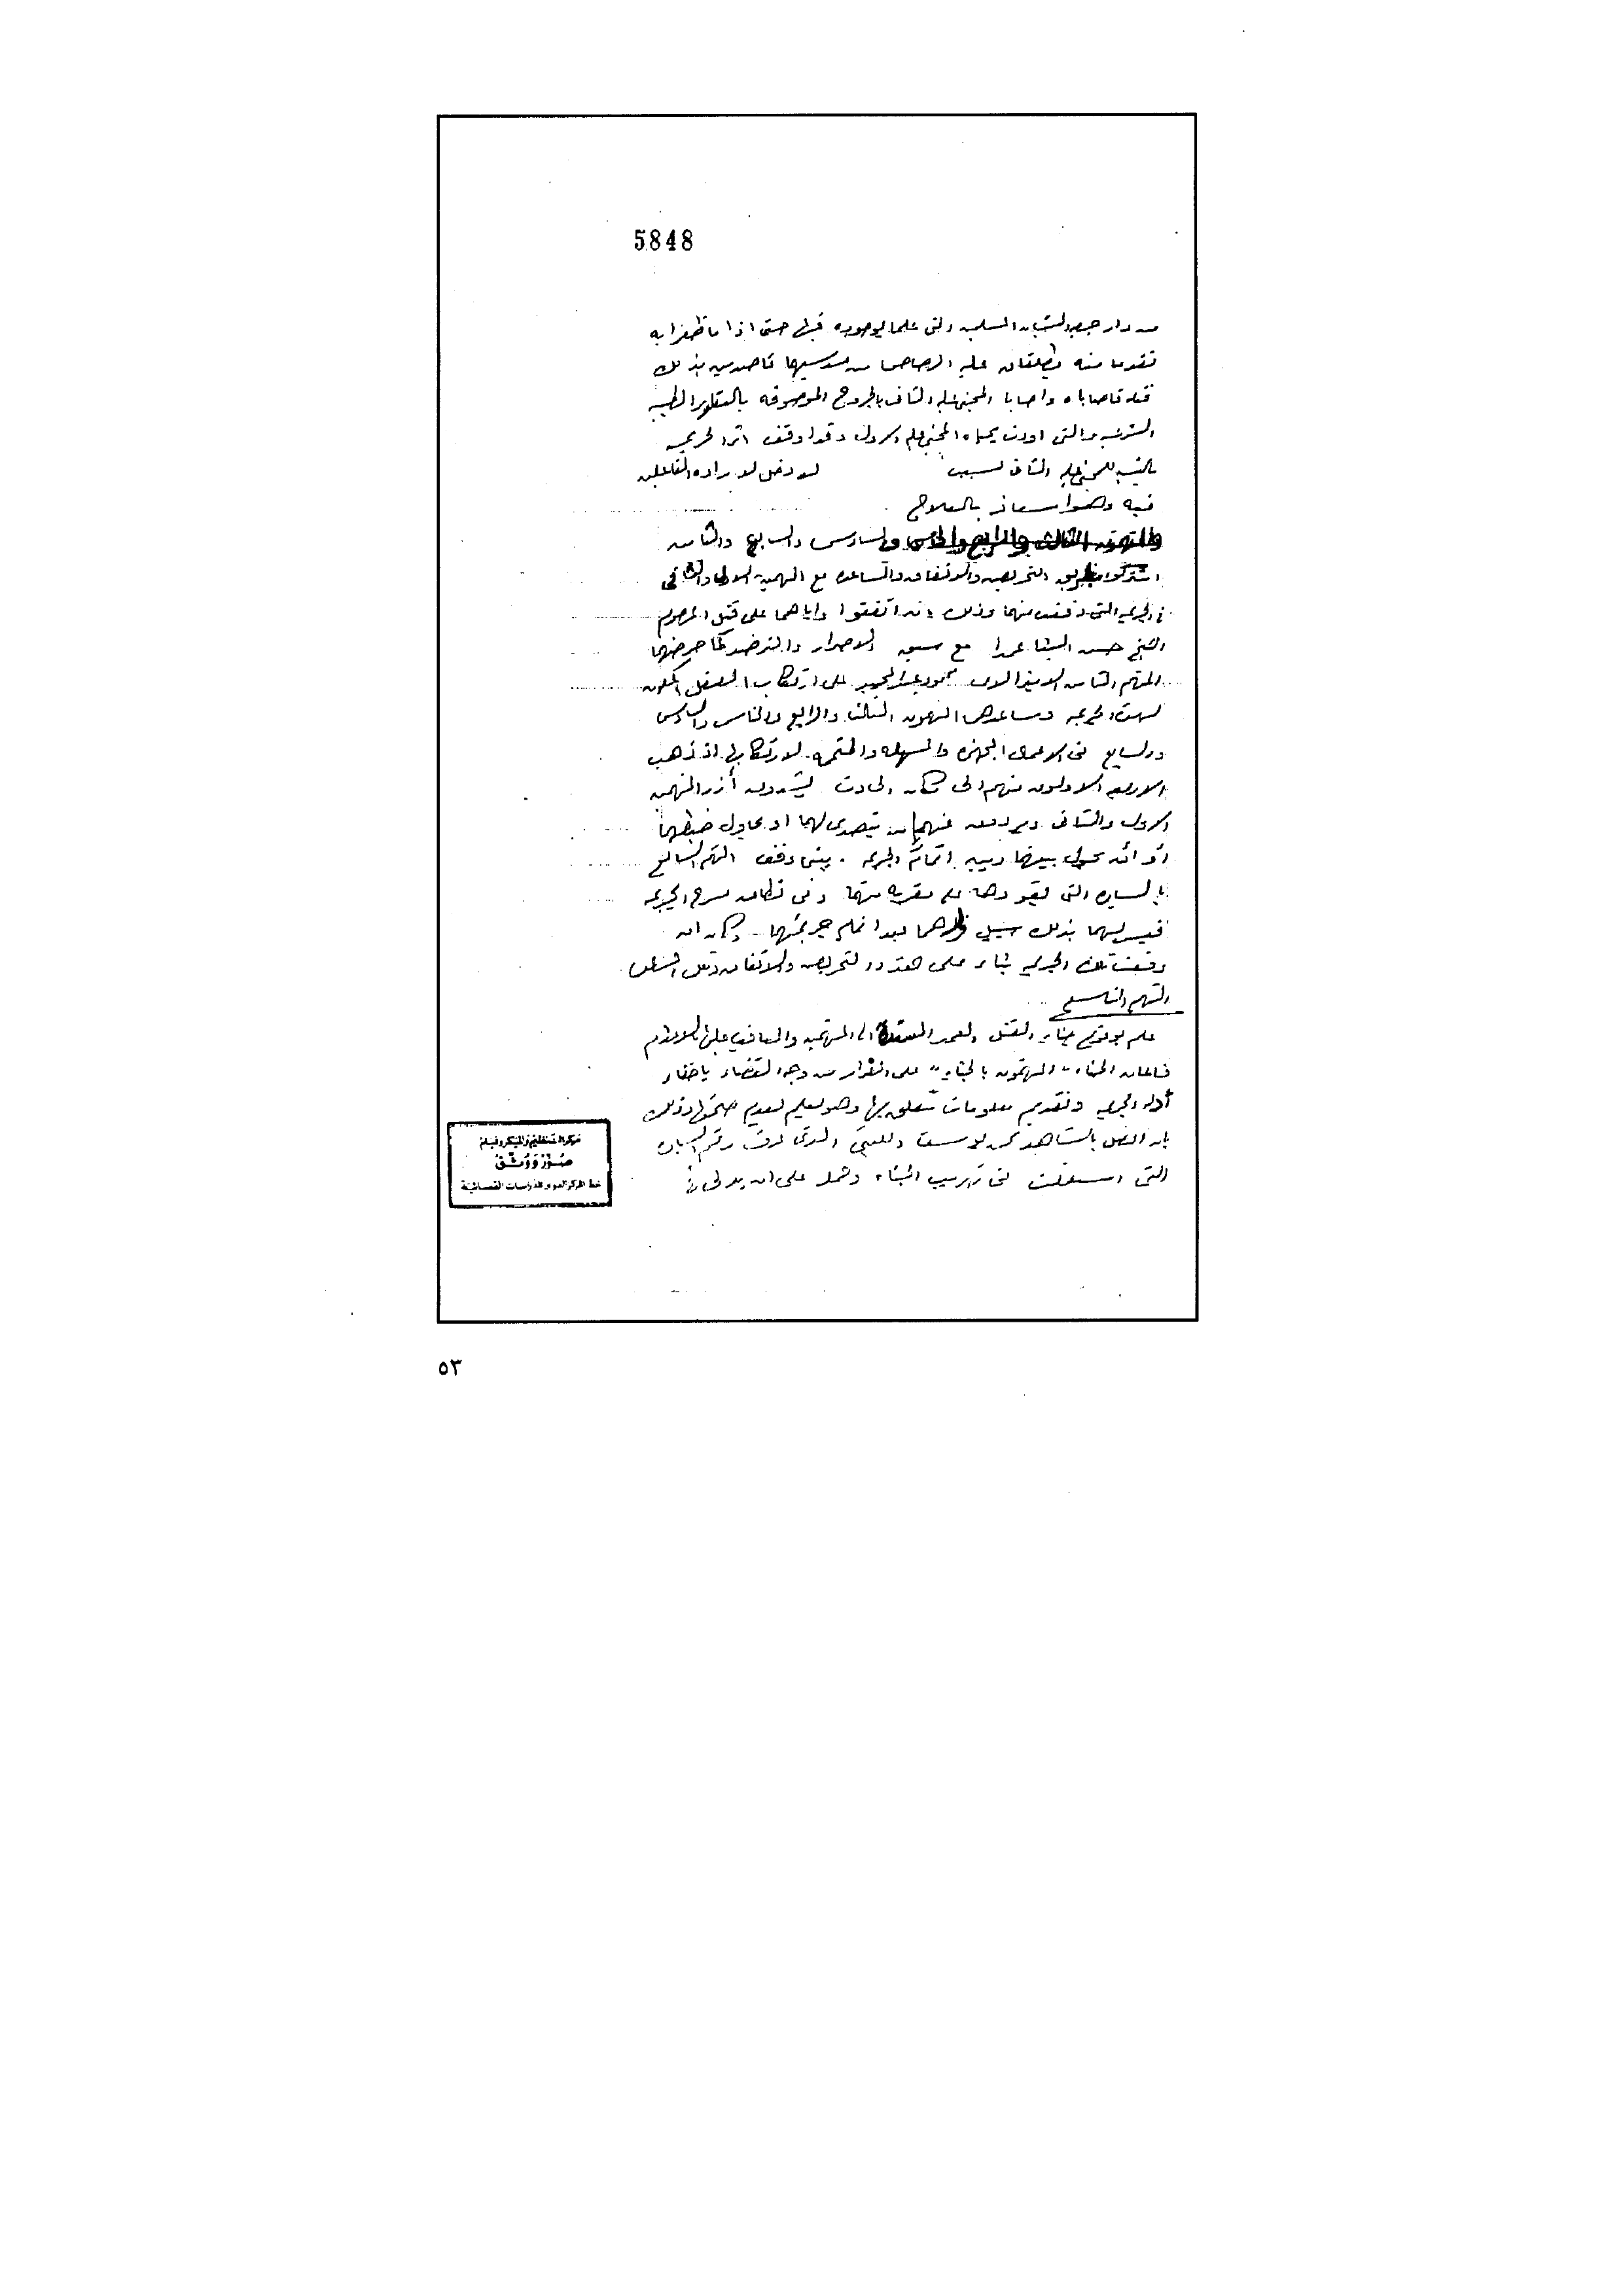 5848
من دار جمعية الشبان المسلمين والتى علما بوجوده قبلها حتى اذا ما ظفرا به
تقدما منه يطلقان عليه الرصاص من مسدسيهما قاصدين بذلك
قتله فاصاباه واصابا المجنى عليه الثانى بالجروح الموصوفه بالتقارير الطبيه
الشرعيه والتى اودت بحياه المجنى عليه الاول وقد اوقف اثر الجريمه
بالنسبه للمجنى عليه الثانى لسبب لا دخل لاراده الفاعلين
فيه وهو اسعافه بالعلاج
والمتهمون الثالث والرابع والخامس والسادس والسابع والثامن
اشتركوا بطريق التحريض والاتفاق والمساعده مع المتهمين الاول والثانى
فى الجريمه التى وقعت منهما وذلك بان اتفقوا واياهما على قتل المرحوم
الشيخ حسن البنا عمدا مع سبق الاصرار والترصد كما حرضهما
المتهم الثامن الاميرالاى محمود عبد المجيد على ارتكاب الفعل المكون
لهذه الجريمه وساعدهما المتهمون الثالث والرابع والخامس والسادس
والسابع فى الاعمال المجهزه والمسهله والمتممه لارتكابها اذ ذهب
الاربعه الاولون منهم الى مكان الحادث يشدون أزر المتهمين
الاول والثانى ويردعون عنهما من يتصدى لهما او يحاول ضبطهما
أو أن يحول بينهما وبين اتمام الجريمه . بينما وقف المتهم السابع
بالسياره التى يقودها على مقربه منهما وفى نطاق مسرح الجريمه
فيسر لهما بذلك سبيل فرارهما بعد اتمام جريمتهما . وكان ان
وقعت تلك الجريمه بناء على هذا التحريض والاتفاق وتلك المساعده
المتهم التاسع
علم بوقوع جناية القتل العمد المسنده الى المتهمين والمعاقب عليها بالاعدام
فاعان الجناه "المتهمون بالجنايه" على الفرار من وجه القضاء باخفاء
أدله الجريمه وتقديم معلومات تتعلق بها وهو يعلم بعدم صحتها وذلك
بان اتصل بالشاهد محمد يوسف الليثى الذى عرف رقم السياره
التى استعملت فى تهريب الجناه وحمله على ان يدلى
مركز التنظيم والميكروفيلم
صُوّرَ وَوُثّقَ
خط المركز القومى للدراسات القضائية
٥٣